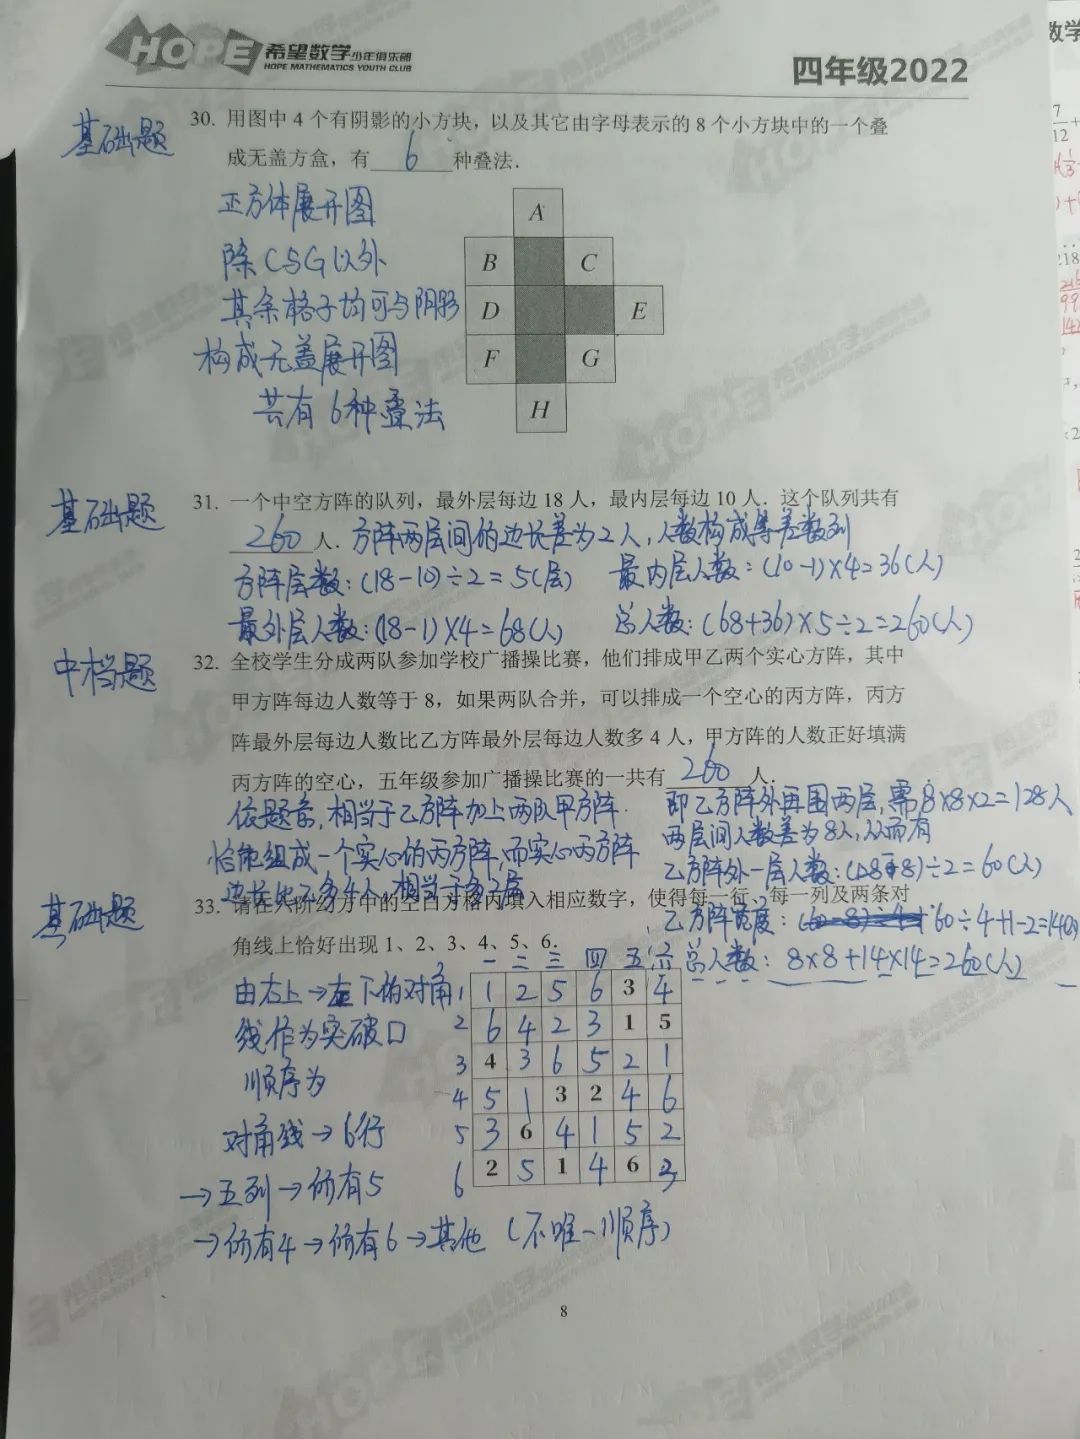 HOPE 希望数学少年俱乐部
HOPE MATHEMATICS YOUTH CLUB
四年级2022
数学
基础题
30. 用图中 4 个有阴影的小方块，以及其它由字母表示的 8 个小方块中的一个叠
成无盖方盒，有 6 种叠法.
正方体展开图
除C与G以外
其余格子均可与阴影
构成无盖展开图
共有 6种叠法
A
B C
D E
F G
H
基础题
31. 一个中空方阵的队列，最外层每边 18 人，最内层每边 10 人. 这个队列共有
260 人. 方阵两层间的边长差为2人,人数构成等差数列
方阵层数:(18-10)÷2=5(层) 最内层人数:(10-1)×4=36(人)
最外层人数:(18-1)×4=68(人) 总人数:(68+36)×5÷2=260(人)
中档题
32. 全校学生分成两队参加学校广播操比赛，他们排成甲乙两个实心方阵，其中
甲方阵每边人数等于 8，如果两队合并，可以排成一个空心的丙方阵，丙方
阵最外层每边人数比乙方阵最外层每边人数多 4 人，甲方阵的人数正好填满
丙方阵的空心，五年级参加广播操比赛的一共有 260 人.
依题意,相当于乙方阵加上两队甲方阵.
恰能组成一个实心的丙方阵,而实心丙方阵
边长比乙多4人,相当于多2层
即乙方阵外再围两层,需8×8×2=128人
两层间人数差为8人,从而有
乙方阵外一层人数:(128-8)÷2=60(人)
乙方阵宽度: 60÷4+1-2=14(人)
总人数: 8×8+14×14=260(人)
基础题
33. 请在六阶幻方中的空白方格内填入相应数字，使得每一行、每一列及两条对
角线上恰好出现 1、2、3、4、5、6.
一 二 三 四 五 六
1 1 2 5 6 3 4
2 6 4 2 3 1 5
3 4 3 6 5 2 1
4 5 1 3 2 4 6
5 3 6 4 1 5 2
6 2 5 1 4 6 3
由右上→左下的对角
线作为突破口
顺序为
对角线→6行
→五列→所有5
→所有4→所有6→其他 (不唯一顺序)
8